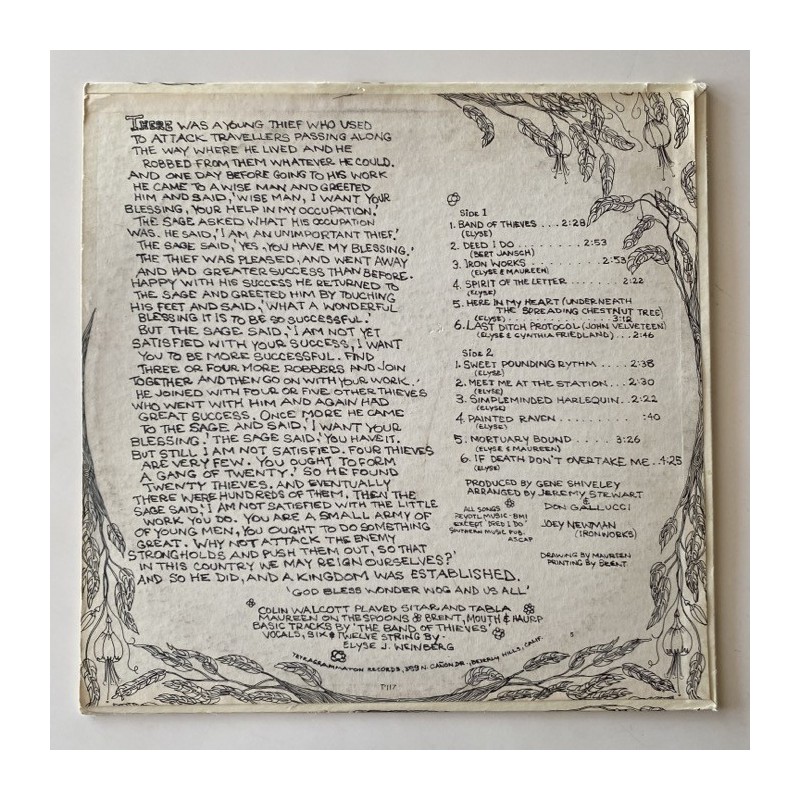 THERE WAS A YOUNG THIEF WHO USED
TO ATTACK TRAVELLERS PASSING ALONG
THE WAY WHERE HE LIVED AND HE
ROBBED FROM THEM WHATEVER HE COULD.
AND ONE DAY BEFORE GOING TO HIS WORK
HE CAME TO A WISE MAN AND GREETED
HIM AND SAID, 'WISE MAN, I WANT YOUR
BLESSING, YOUR HELP IN MY OCCUPATION.'
THE SAGE ASKED WHAT HIS OCCUPATION
WAS. HE SAID, 'I AM AN UNIMPORTANT THIEF.'
THE SAGE SAID, 'YES, YOU HAVE MY BLESSING.'
THE THIEF WAS PLEASED, AND WENT AWAY
AND HAD GREATER SUCCESS THAN BEFORE.
HAPPY WITH HIS SUCCESS HE RETURNED TO
THE SAGE AND GREETED HIM BY TOUCHING
HIS FEET AND SAID, 'WHAT A WONDERFUL
BLESSING IT IS TO BE SO SUCCESSFUL.'
BUT THE SAGE SAID, 'I AM NOT YET
SATISFIED WITH YOUR SUCCESS, I WANT
YOU TO BE MORE SUCCESSFUL. FIND
THREE OR FOUR MORE ROBBERS AND JOIN
TOGETHER AND THEN GO ON WITH YOUR WORK.'
HE JOINED WITH FOUR OR FIVE OTHER THIEVES
WHO WENT WITH HIM AND AGAIN HAD
GREAT SUCCESS. ONCE MORE HE CAME
TO THE SAGE AND SAID, 'I WANT YOUR
BLESSING.' THE SAGE SAID, 'YOU HAVE IT.
BUT STILL I AM NOT SATISFIED. FOUR THIEVES
ARE VERY FEW. YOU OUGHT TO FORM
A GANG OF TWENTY.' SO HE FOUND
TWENTY THIEVES. AND EVENTUALLY
THERE WERE HUNDREDS OF THEM. THEN THE
SAGE SAID, 'I AM NOT SATISFIED WITH THE LITTLE
WORK YOU DO. YOU ARE A SMALL ARMY OF
OF YOUNG MEN, YOU OUGHT TO DO SOMETHING
GREAT. WHY NOT ATTACK THE ENEMY
STRONGHOLDS AND PUSH THEM OUT, SO THAT
IN THIS COUNTRY WE MAY REIGN OURSELVES?'
AND SO HE DID, AND A KINGDOM WAS ESTABLISHED.
'GOD BLESS WONDER WOG AND US ALL'
COLIN WALCOTT PLAYED SITAR AND TABLA
MAUREEN ON THE SPOONS & BRENT, MOUTH & HAURP
BASIC TRACKS BY 'THE BAND OF THIEVES'
VOCALS, SIX & TWELVE STRING BY-
ELYSE J. WEINBERG
TETRAGRAMMATON RECORDS, 359 N. CAÑON DR., BEVERLY HILLS, CALIF.
SIDE 1
1. BAND OF THIEVES ... 2:28
(ELYSE)
2. DEED I DO ..... 2:53
(BERT JANSCH)
3. IRON WORKS ....... 2:53
(ELYSE & MAUREEN)
4. SPIRIT OF THE LETTER ... 2:22
(ELYSE)
5. HERE IN MY HEART (UNDERNEATH
THE SPREADING CHESTNUT TREE)
(ELYSE) .............. 3:12
6. LAST DITCH PROTOCOL (JOHN VELVETEEN)
(ELYSE & CYNTHIA FRIEDLAND) ... 2:46
SIDE 2
1. SWEET POUNDING RYTHM ... 2:38
(ELYSE)
2. MEET ME AT THE STATION .... 2:30
(ELYSE)
3. SIMPLEMINDED HARLEQUIN.. 2:22
(ELYSE)
4. PAINTED RAVEN ......... :40
(ELYSE)
5. MORTUARY BOUND .... 3:26
(ELYSE & MAUREEN)
6. IF DEATH DON'T OVERTAKE ME.. 4:25
(ELYSE)
PRODUCED BY GENE SHIVELEY
ARRANGED BY JEREMY STEWART
&
DON GALLUCCI
JOEY NEWMAN
(IRONWORKS)
ALL SONGS
MUSIC-BMI
EXCEPT 'DEED I DO'
SOUTHERN MUSIC PUB.
ASCAP
DRAWING BY MAUREEN
PRINTING BY BRENT.